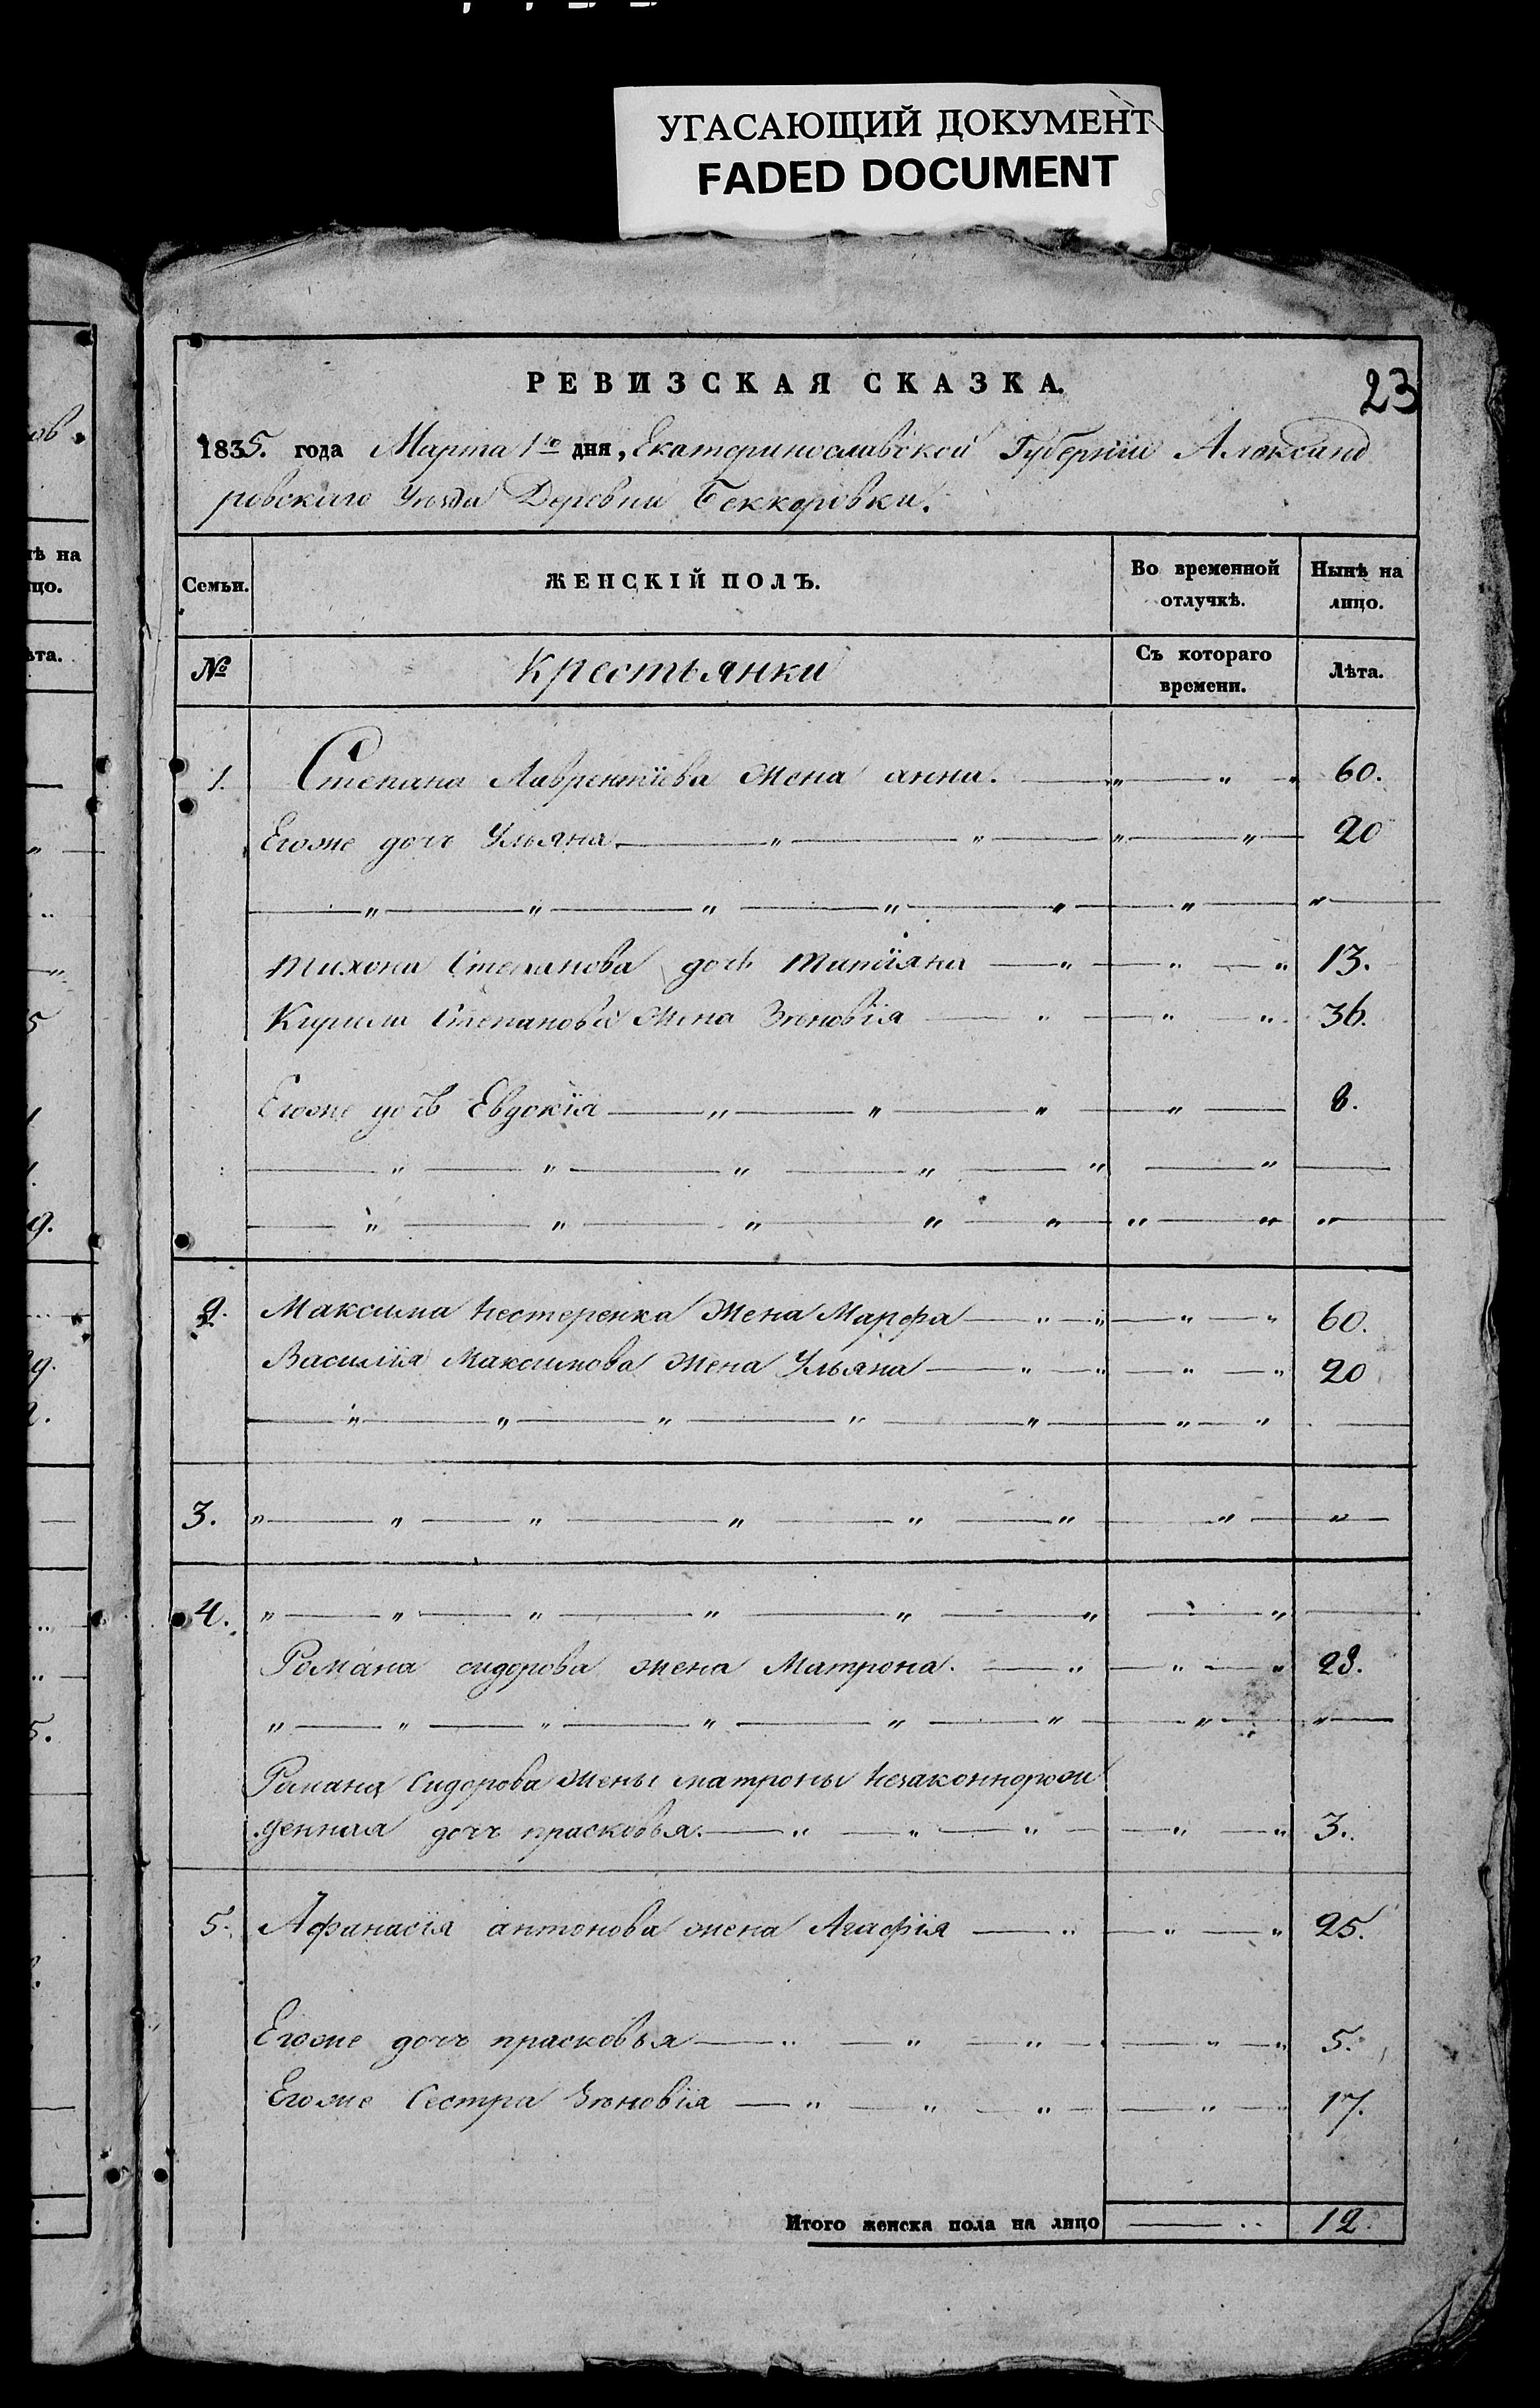 УГАСАЮЩИЙ ДОКУМЕНТ
FADED DOCUMENT
РЕВИЗСКАЯ СКАЗКА.
23
1835. года Марта 1го дня, Екатеринославской Губернiи Александ
ровскаго Уѣзда Деревни Беккеровки.
Семьи. ЖЕНСКIЙ ПОЛЪ. Во временной отлучкѣ. Нынѣ на лицо.
№ Крестьянки Съ котораго времени. Лѣта.
1. Степана Лаврентiева жена анна. 60.
Егоже дочь Ульяна 20
Тихона Степанова дочь Татiяна 13.
Кирила Степанова жена Зѣновiя 36.
Егоже дочь Евдокiя 8.
2. Максима Нестеренка жена Марфа 60.
Василiя Максимова жена Ульяна 20
3.
4.
Романа сидорова жена Матрона. 28.
Романа Сидорова жены матроны незаконнорож
денная дочь прасковья. 3.
5. Афанасiя антонова жена Агафiя 25.
Егоже дочь прасковья 5.
Егоже Сестра Зѣновiя 17.
Итого женска пола на лицо 12.